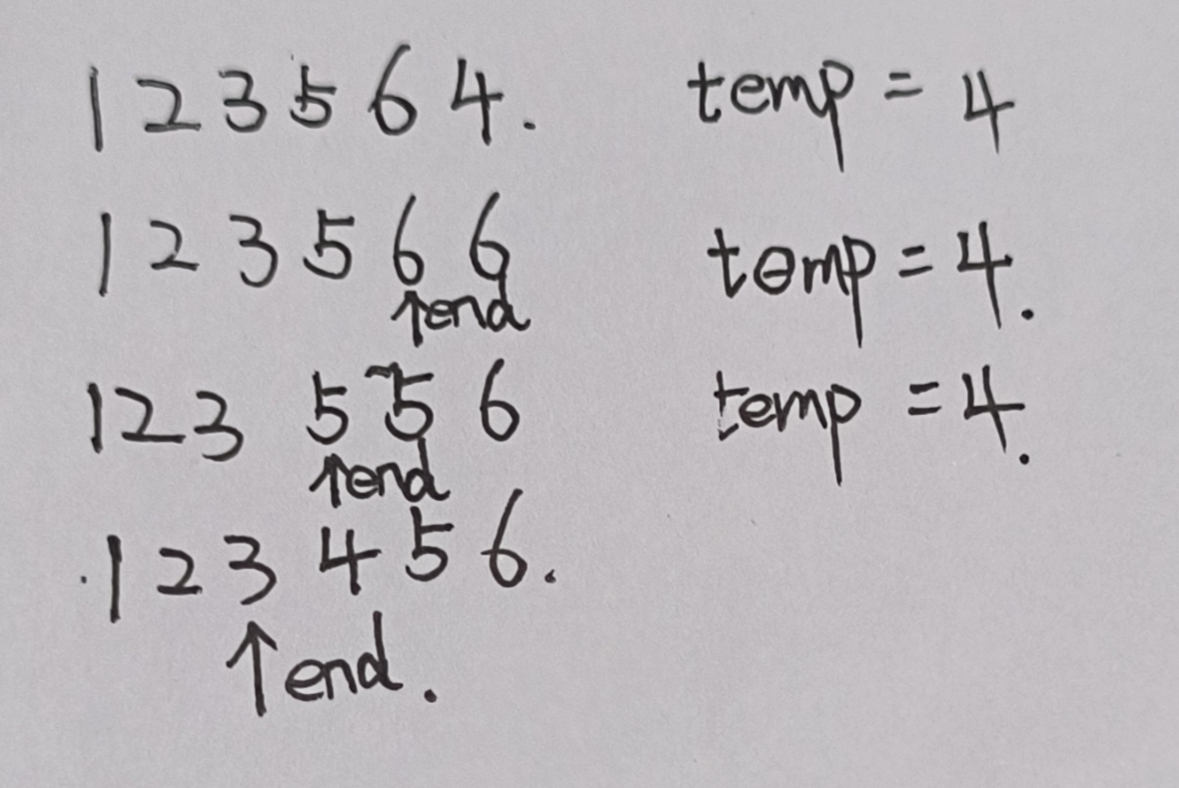 1 2 3 5 6 4. temp = 4
1 2 3 5 6 6 temp = 4.
↑end
1 2 3 5 5 6 temp = 4.
↑end
1 2 3 4 5 6.
↑end.